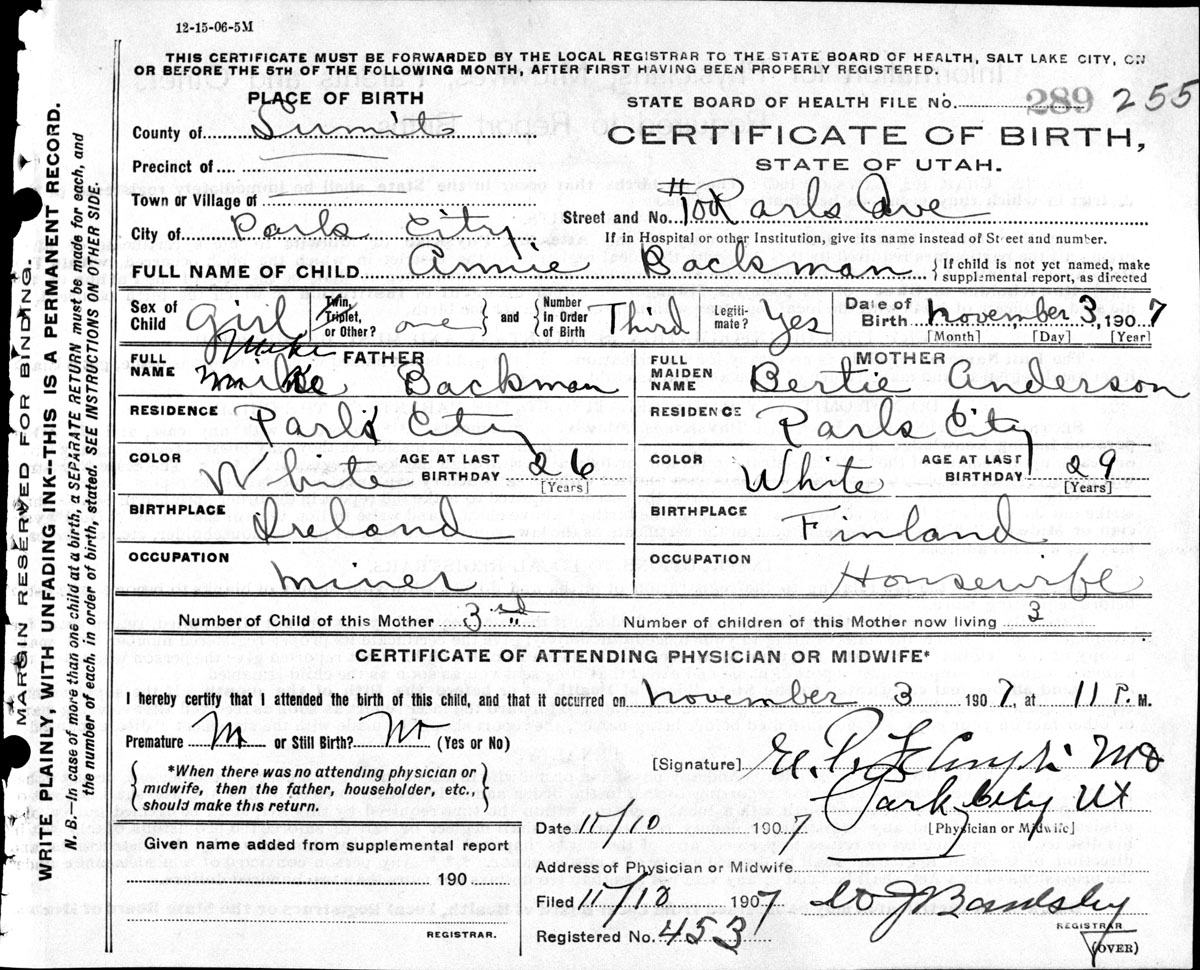 12-15-06-5M
THIS CERTIFICATE MUST BE FORWARDED BY THE LOCAL REGISTRAR TO THE STATE BOARD OF HEALTH, SALT LAKE CITY, ON
OR BEFORE THE 5TH OF THE FOLLOWING MONTH, AFTER FIRST HAVING BEEN PROPERLY REGISTERED.
MARGIN RESERVED FOR BINDING.
WRITE PLAINLY, WITH UNFADING INK--THIS IS A PERMANENT RECORD.
N. B.—In case of more than one child at a birth, a SEPARATE RETURN must be made for each, and
the number of each, in order of birth, stated. SEE INSTRUCTIONS ON OTHER SIDE.
PLACE OF BIRTH
STATE BOARD OF HEALTH FILE No. 289 255
County of Summit
CERTIFICATE OF BIRTH,
Precinct of
STATE OF UTAH.
Town or Village of
Street and No. # Park Ave
City of Park City
If in Hospital or other Institution, give its name instead of Street and number.
FULL NAME OF CHILD Annie Backman { If child is not yet named, make
supplemental report, as directed
Sex of Child Girl Twin, Triplet, or Other? one and Number In Order of Birth Third Legiti-mate? Yes Date of Birth November 3, 1907
[Month] [Day] [Year]
FATHER
MOTHER
FULL NAME Mike Backman
FULL MAIDEN NAME Bertie Anderson
RESIDENCE Park City
RESIDENCE Park City
COLOR White AGE AT LAST BIRTHDAY 26 [Years]
COLOR White AGE AT LAST BIRTHDAY 29 [Years]
BIRTHPLACE Ireland
BIRTHPLACE Finland
OCCUPATION Miner
OCCUPATION Housewife
Number of Child of this Mother 3rd
Number of children of this Mother now living 3
CERTIFICATE OF ATTENDING PHYSICIAN OR MIDWIFE*
I hereby certify that I attended the birth of this child, and that it occurred on November 3 1907, at 11 P. M.
Premature or Still Birth? No (Yes or No)
*When there was no attending physician or
midwife, then the father, householder, etc.,
should make this return.
[Signature] E. P. MD
Park City Ut
Date 11/10 1907 [Physician or Midwife]
Given name added from supplemental report
190
REGISTRAR.
Address of Physician or Midwife
Filed 11/10 1907
REGISTRAR
Registered No. 453
(OVER)